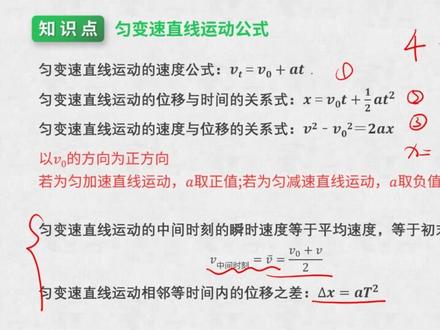 知识点 匀变速直线运动公式
4
匀变速直线运动的速度公式：v_t = v_0 + at . ①
匀变速直线运动的位移与时间的关系式：x = v_0t + \frac{1}{2}at^2 ②
匀变速直线运动的速度与位移的关系式：v^2 - v_0^2 = 2ax ③
x=
以v_0的方向为正方向
若为匀加速直线运动，a取正值;若为匀减速直线运动，a取负值
匀变速直线运动的中间时刻的瞬时速度等于平均速度，等于初
v_{中间时刻} = \bar{v} = \frac{v_0 + v}{2}
匀变速直线运动相邻等时间内的位移之差：Δx = aT^2